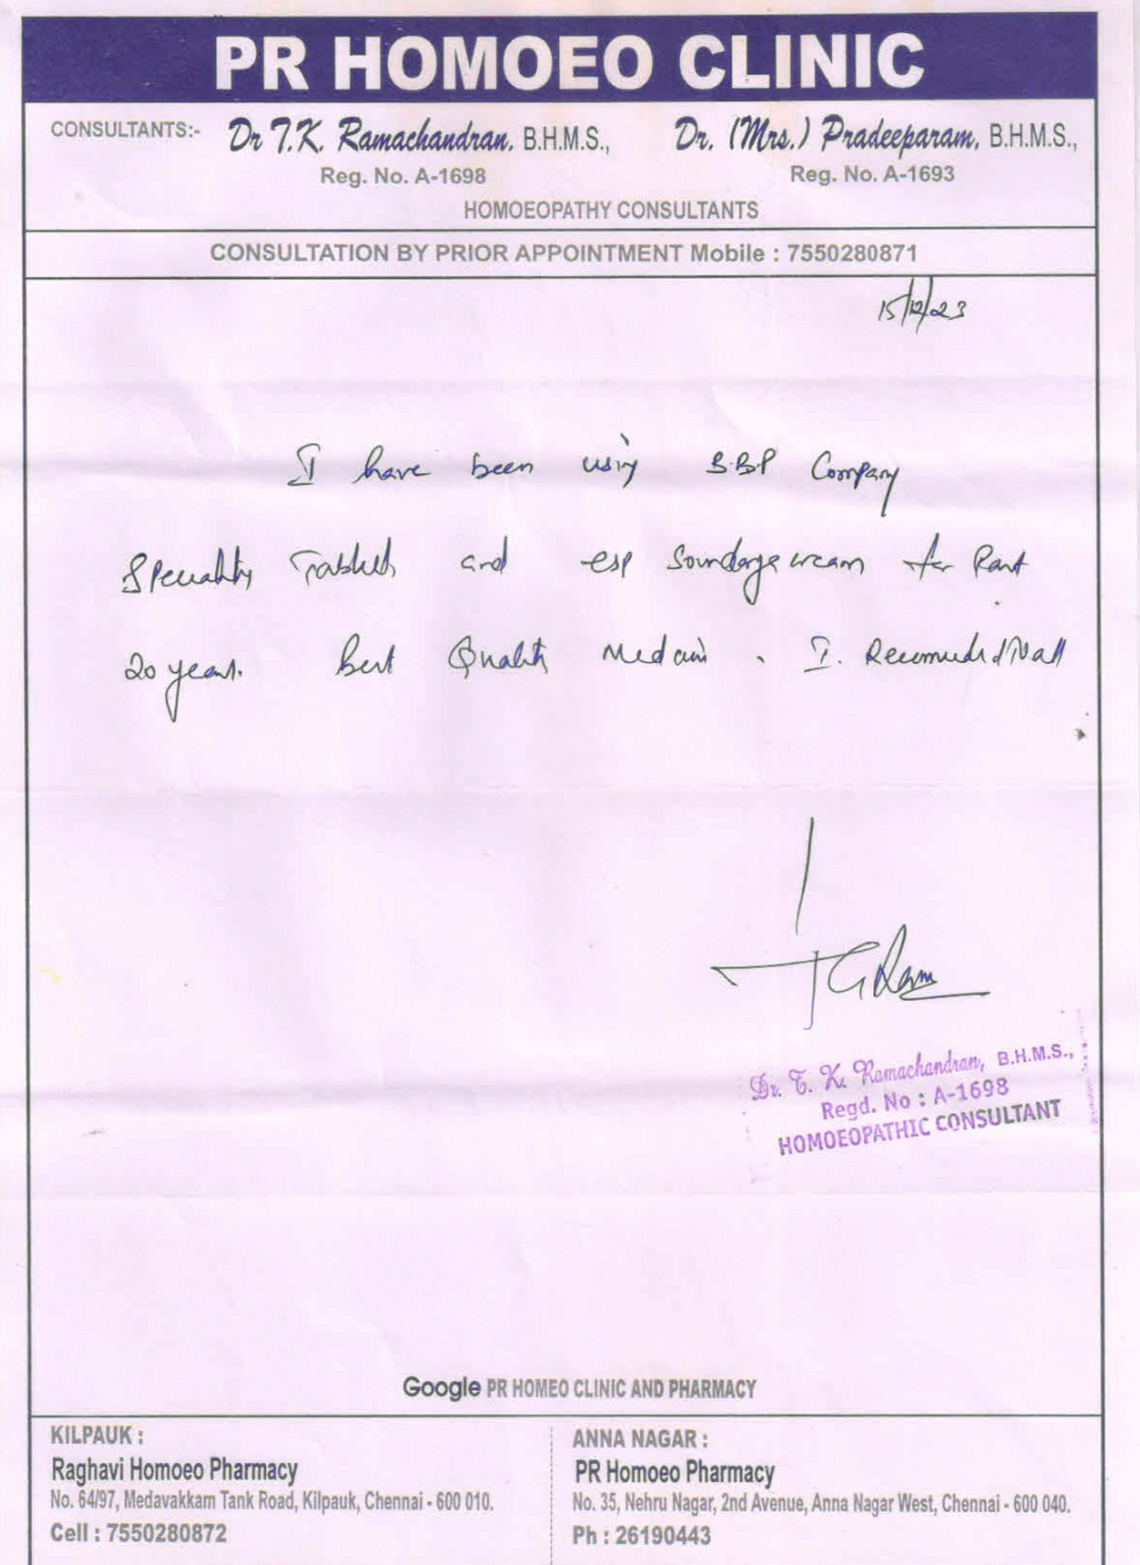 PR HOMOEO CLINIC
CONSULTANTS:- Dr T.K. Ramachandran, B.H.M.S., Dr. (Mrs.) Pradeeparam, B.H.M.S.,
Reg. No. A-1698 Reg. No. A-1693
HOMOEOPATHY CONSULTANTS
CONSULTATION BY PRIOR APPOINTMENT Mobile : 7550280871
15/12/23
I have been using B.B.P Company
Speciality Tablets and esp cream for Past
20 years. Best Quality . I.
Dr. T. K. Ramachandran, B.H.M.S.,
Regd. No : A-1698
HOMOEOPATHIC CONSULTANT
Google PR HOMEO CLINIC AND PHARMACY
KILPAUK :
Raghavi Homoeo Pharmacy
No. 64/97, Medavakkam Tank Road, Kilpauk, Chennai - 600 010.
Cell : 7550280872
ANNA NAGAR :
PR Homoeo Pharmacy
No. 35, Nehru Nagar, 2nd Avenue, Anna Nagar West, Chennai - 600 040.
Ph : 26190443